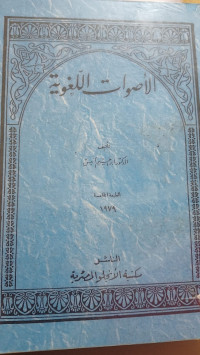 الأصوات اللغوية
تأليف
الدكتور إبراهيم أنيس
الطبعة الخامسة
١٩٧٩
الناشر
مكتبة الأنجلو المصرية